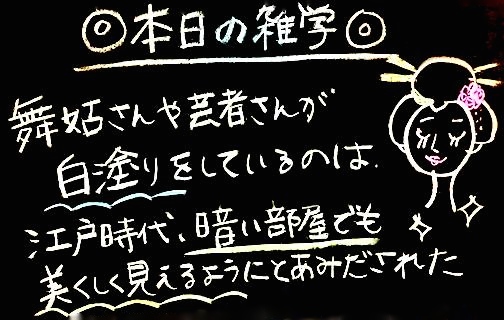 ◎本日の雑学◎
舞妓さんや芸者さんが
白塗りをしているのは、
江戸時代、暗い部屋でも
美くしく見えるようにとあみだされた